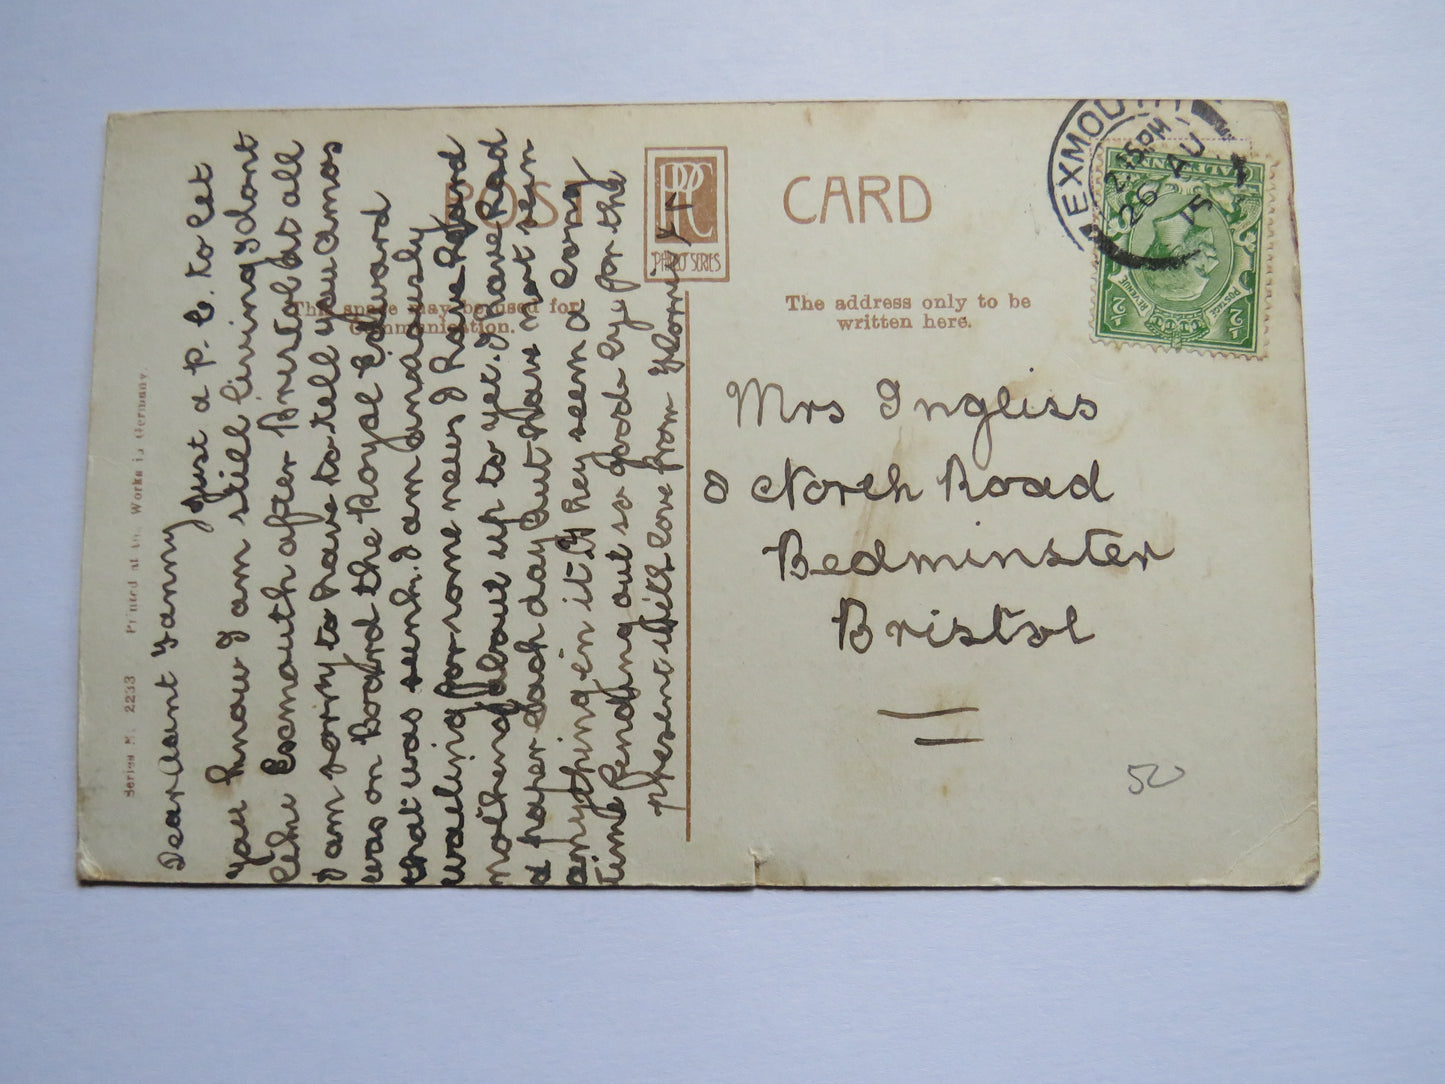 POST CARD
PPC
PHICO SERIES
This space may be used for
Communication.
The address only to be
written here.
Series N. 2233 Printed at Works in Germany.
EXMOUTH
2.15 PM
26 AU
15
POSTAGE REVENUE
Dear Aunt Fanny Just a P. C. to let
you know I am still living I dont
like Exmouth after Bristol at all
I am sorry to have to tell you Amos
was on Board the Royal Edward
that was sunk. I am anxiously
waiting for some news I have heard
nothing about up to yet. I have had
a paper each day but have not seen
anything in it. They seem a long
time finding out so good-bye for the
present with love from Florrie
Mrs Ingliss
North Road
Bedminster
Bristol
50